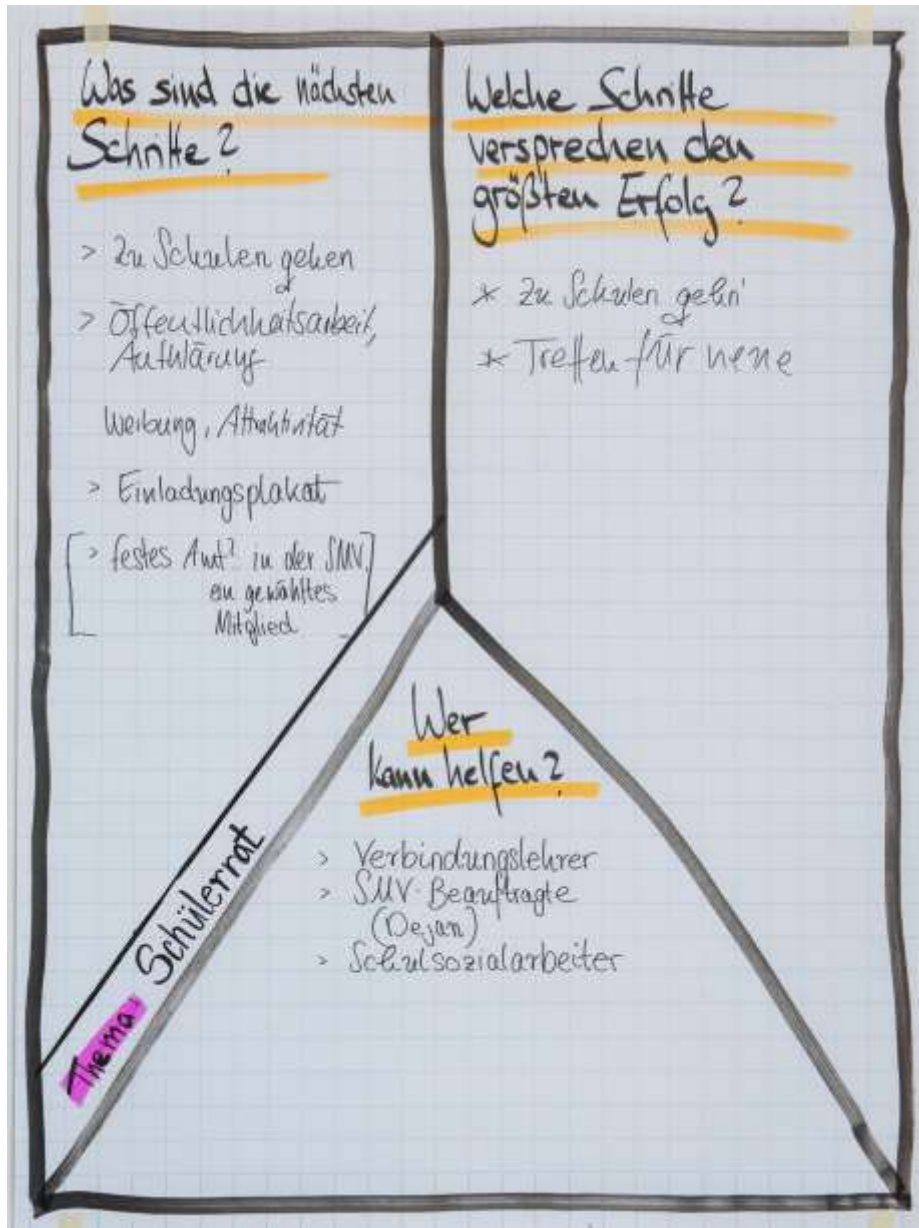 Was sind die nächsten
Schritte?
> Zu Schulen gehen
> Öffentlichkeitsarbeit,
Aufklärung
Werbung, Attraktivität
> Einladungsplakat
[> festes Amt? in der SMV]
ein gewähltes
Mitglied
Welche Schritte
versprechen den
größten Erfolg?
* Zu Schulen gehn'
* Treffen für neue
Wer
kann helfen?
> Verbindungslehrer
> SMV-Beauftragte
(Dejan)
> Schulsozialarbeiter
Thema: Schülerrat